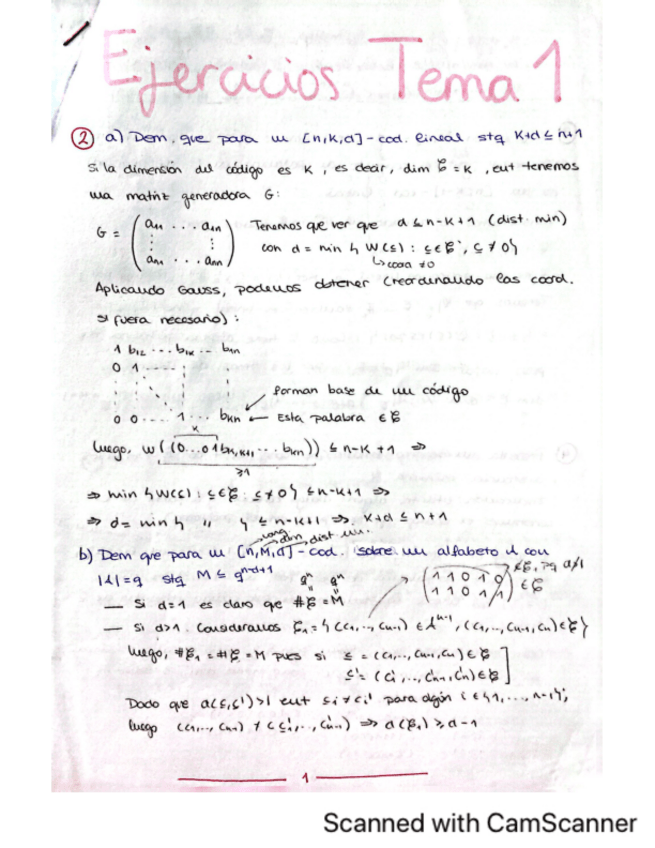 Ejercicios Tema 1
② a) Dem. que para un [n,k,d]-cod. lineal stq k+d ≤ n+1
Si la dimensión del código es K, es decir, dim C = K, ent tenemos
una matriz generadora G:
G = ( a11 ... a1n ⋮ ⋮ an1 ... ann ) Tenemos que ver que d ≤ n-k+1 (dist. min)
con d = min { w(c) : c ∈ C, c ≠ 0 }
Aplicando Gauss, podemos obtener (reordenando las coord.
si fuera necesario):
1 b12 ... b1k ... b1n
0 1 ...
forman base de un código
0 0 ... 1 ... bkn ← Esta palabra ∈ C
k
luego, w ( (0...0 1 bk,k+1 ... bkn) ) ≤ n-k+1 ⇒
≥1
⇒ min { w(c) : c ∈ C : c ≠ 0 } ≤ n-k+1 ⇒
⇒ d = min { " } ≤ n-k+1 ⇒ k+d ≤ n+1
long dim dist. min.
b) Dem que para un [n,M,d]-cod. sobre un alfabeto A con
|A| = q stq M ≤ q^n-d+1
— Si d=1 es claro que #C = M
q^n q^n
( 1 1 0 1 0 1 1 0 1 1 ) ∈ C
— Si d>1. Consideramos C1 = { (c1,..., cn-1) ∈ A^n-1, (c1,..., cn-1, cn) ∈ C }
luego, #C1 = #C = M pues si c = (c1,..., cn-1, cn) ∈ C
c' = (c1',..., cn-1', cn') ∈ C
Dado que d(c,c') > 1 ent ci ≠ ci' para algún i ∈ {1,..., n-1},
luego (c1,..., cn-1) ≠ (c1',..., cn-1') ⇒ d(C1) ≥ d-1
1
Scanned with CamScanner